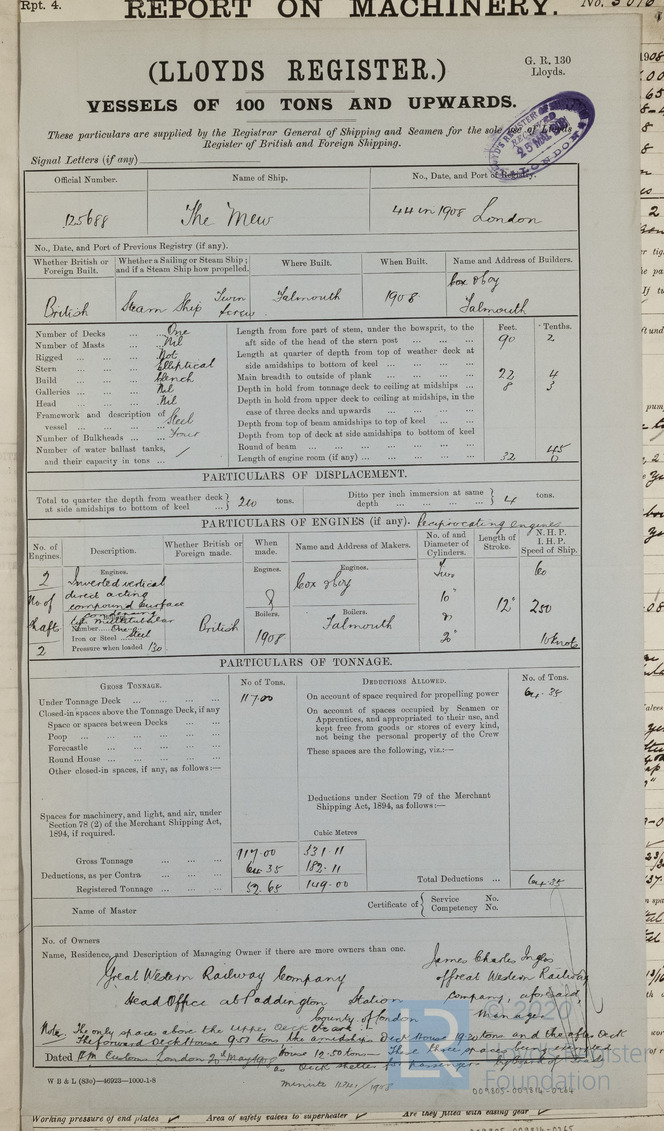 Rpt. 4.
REPORT ON MACHINERY.
No.
(LLOYDS REGISTER.)
G. R. 130
Lloyds.
VESSELS OF 100 TONS AND UPWARDS.
These particulars are supplied by the Registrar General of Shipping and Seamen for the sole use of Lloyds
Register of British and Foreign Shipping.
Signal Letters (if any)
Official Number. Name of Ship. No., Date, and Port of Registry.
125688 The Mew 44 in 1908 London
No., Date, and Port of Previous Registry (if any).
Whether British or Foreign Built. Whether a Sailing or Steam Ship; and if a Steam Ship how propelled. Where Built. When Built. Name and Address of Builders.
British Steam Ship Twin Screw Falmouth 1908 Cox & Coy Falmouth
Number of Decks ... One
Number of Masts ... Nil
Rigged ... Not
Stern ... Elliptical
Build ... Clench
Galleries ... Nil
Head ... Nil
Framework and description of vessel ... Steel
Number of Bulkheads ... Four
Number of water ballast tanks, and their capacity in tons ... /
Feet. Tenths.
Length from fore part of stem, under the bowsprit, to the aft side of the head of the stern post ... 90 2
Length at quarter of depth from top of weather deck at side amidships to bottom of keel ...
Main breadth to outside of plank ... 22 4
Depth in hold from tonnage deck to ceiling at midships ... 8 3
Depth in hold from upper deck to ceiling at midships, in the case of three decks and upwards ...
Depth from top of beam amidships to top of keel ...
Depth from top of deck at side amidships to bottom of keel
Round of beam ... 45
Length of engine room (if any) ... 32 0
PARTICULARS OF DISPLACEMENT.
Total to quarter the depth from weather deck at side amidships to bottom of keel } 210 tons. Ditto per inch immersion at same depth } 4 tons.
PARTICULARS OF ENGINES (if any). Reciprocating engines
No. of Engines. Description. Whether British or Foreign made. When made. Name and Address of Makers. No. of and Diameter of Cylinders. Length of Stroke. N.H.P. I.H.P. Speed of Ship.
Engines. Engines. Engines.
2 Inverted vertical Cox & Coy Two 60
No of direct acting 8 10"
Shafts compound surface condensing 12" 250
Boilers. Boilers.
Number One
Iron or Steel Steel British 1908 Falmouth 20" 10 knots
2 Pressure when loaded 130
PARTICULARS OF TONNAGE.
GROSS TONNAGE. No of Tons. DEDUCTIONS ALLOWED. No. of Tons.
Under Tonnage Deck ... 117.00 On account of space required for propelling power 64.35
Closed-in spaces above the Tonnage Deck, if any
Space or spaces between Decks ...
Poop ...
Forecastle ...
Round House ...
Other closed-in spaces, if any, as follows:—
On account of spaces occupied by Seamen or Apprentices, and appropriated to their use, and kept free from goods or stores of every kind, not being the personal property of the Crew
These spaces are the following, viz.:—
Deductions under Section 79 of the Merchant Shipping Act, 1894, as follows:—
Spaces for machinery, and light, and air, under Section 78 (2) of the Merchant Shipping Act, 1894, if required.
Cubic Metres
Gross Tonnage ... 117.00 331.11
Deductions, as per Contra ... 64.35 182.11
Registered Tonnage ... 52.65 149.00
Total Deductions ... 64.35
Name of Master
Certificate of { Service No. Competency No.
No. of Owners
Name, Residence, and Description of Managing Owner if there are more owners than one.
Great Western Railway Company James Charles Inglis
Head Office at Paddington Station of Great Western Railway
County of London Company, aforesaid,
Manager
Note. The only spaces above the upper Deck
The forward Deck House 9.57 tons the amidships Deck House 19.20 tons and the after Deck
House 12.50 tons These three spaces
as Deck shelter for passengers
Dated Custom London 20th May 1908
Minute 1908
W B & L (83o)—46923—1000-1-8
© 2020
Lloyd's Register
Foundation
009805-009814-0264
Working pressure of end plates Area of safety valves to superheater Are they fitted with easing gear
009805-009814-0265